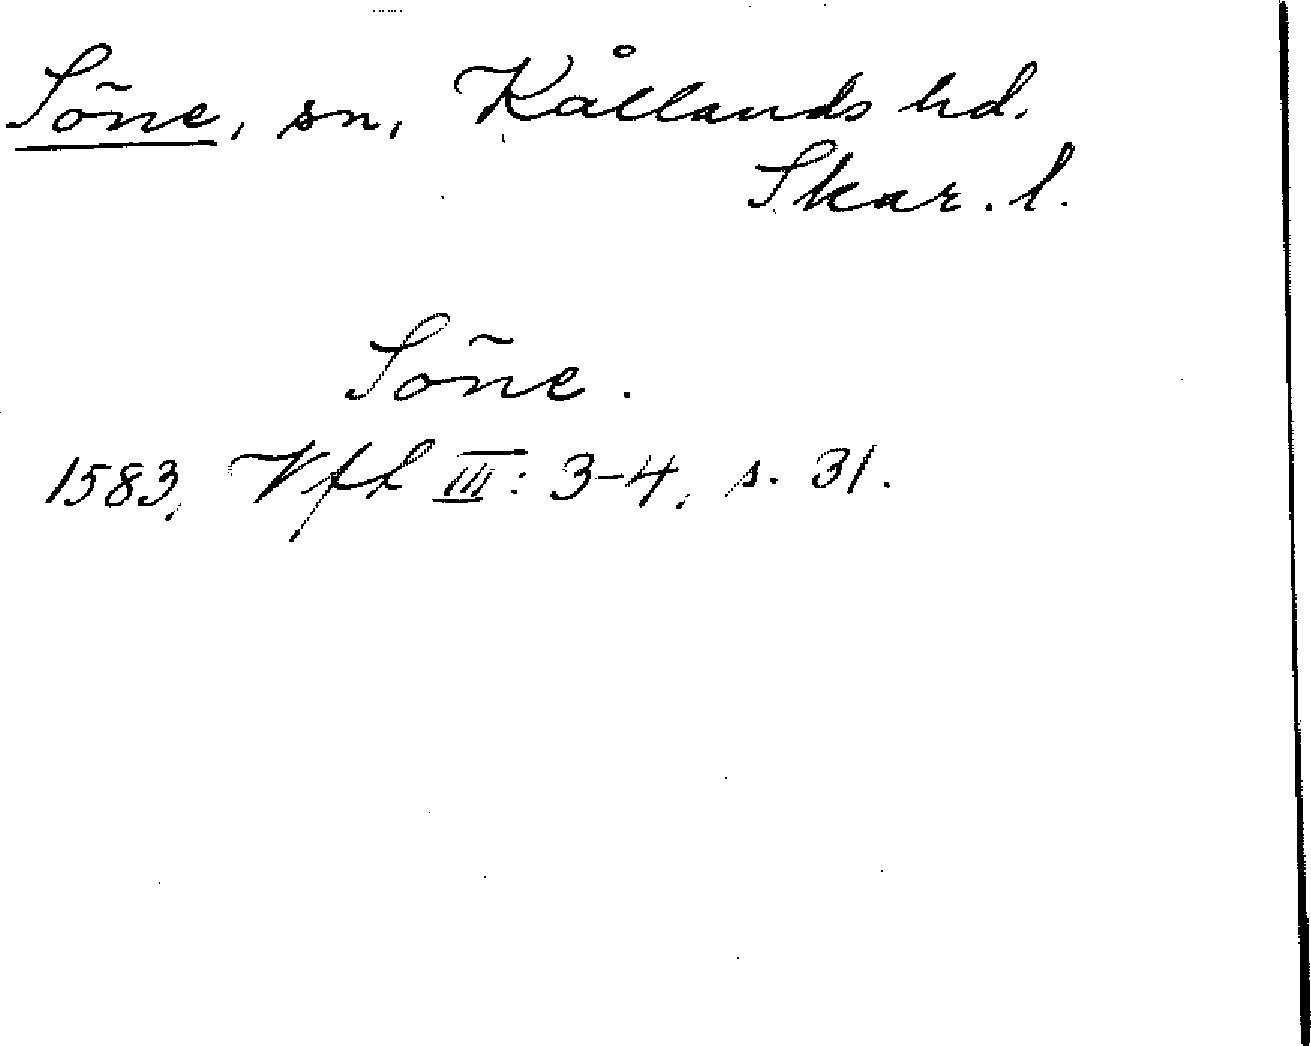 Söne, sn, Kållands hd.
Skar. l.
Söne.
1583, Vft III: 3-4, s. 31.